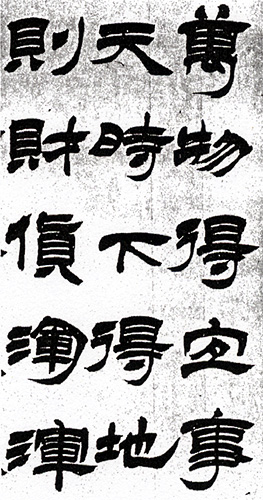 萬物得宜事
天時下得地
則財貨渾渾